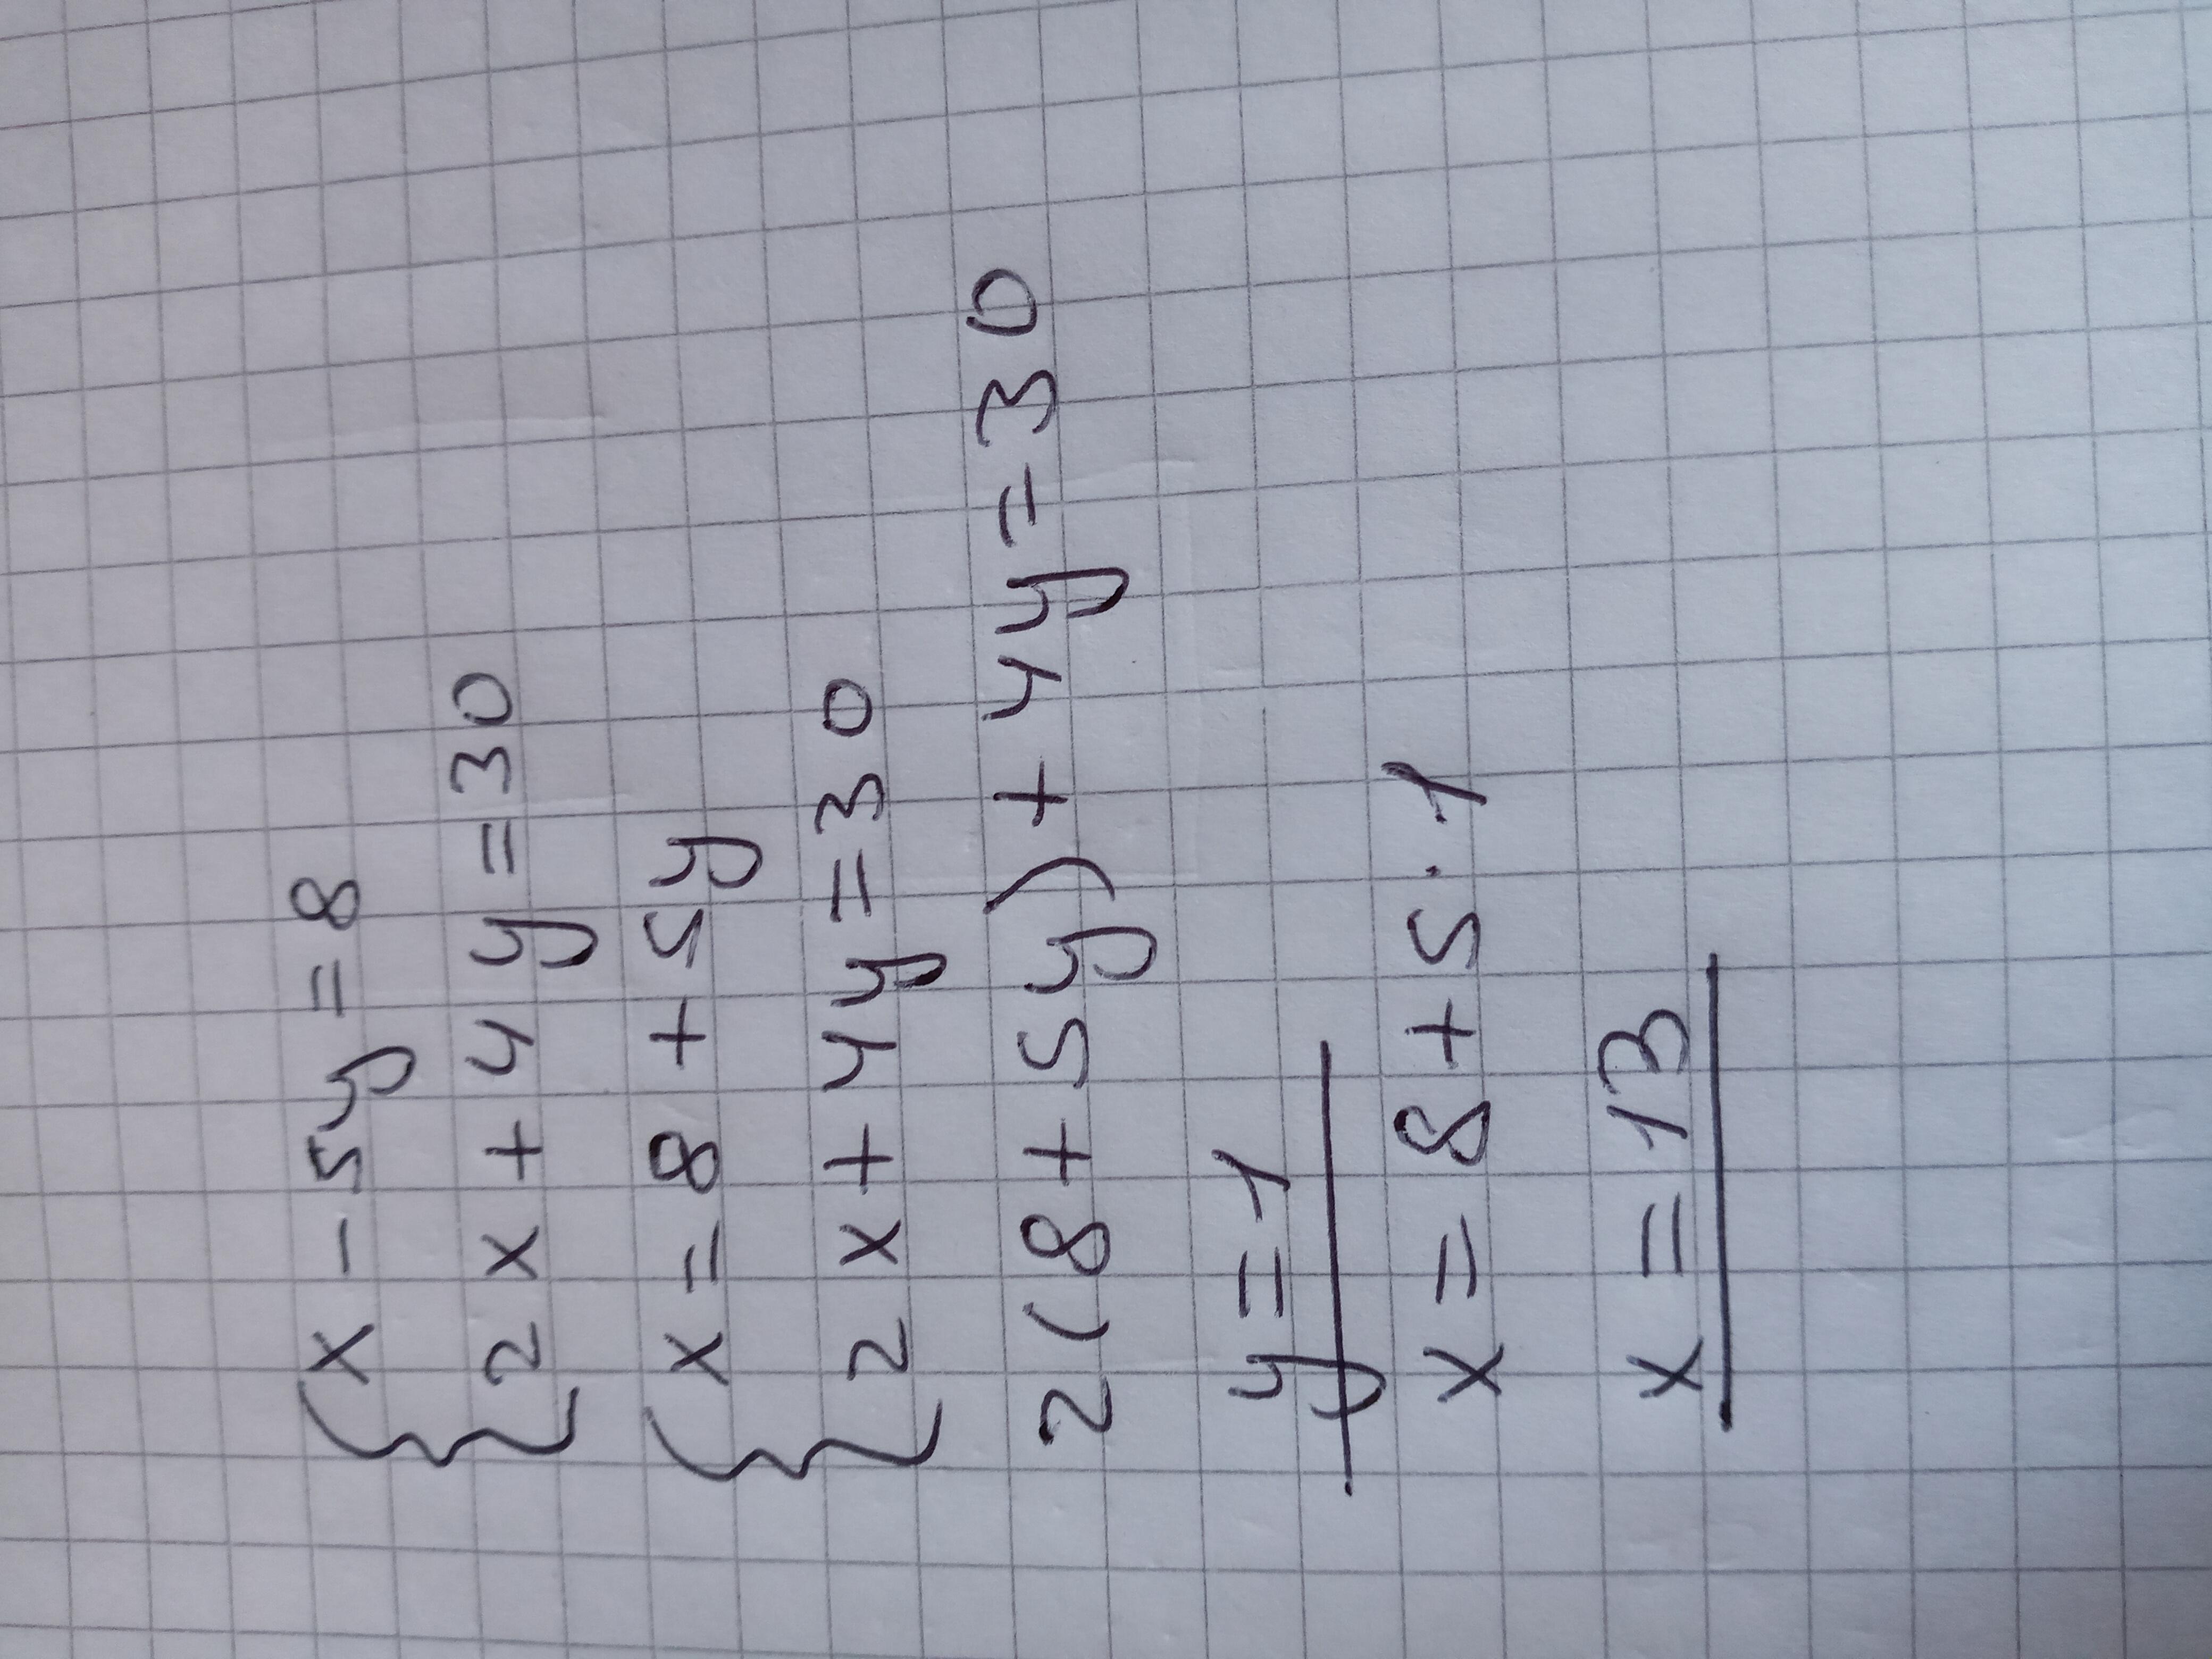 { x - 5y = 8
2x + 4y = 30
{ x = 8 + 5y
2x + 4y = 30
2(8 + 5y) + 4y = 30
y = 1
x = 8 + 5 · 1
x = 13